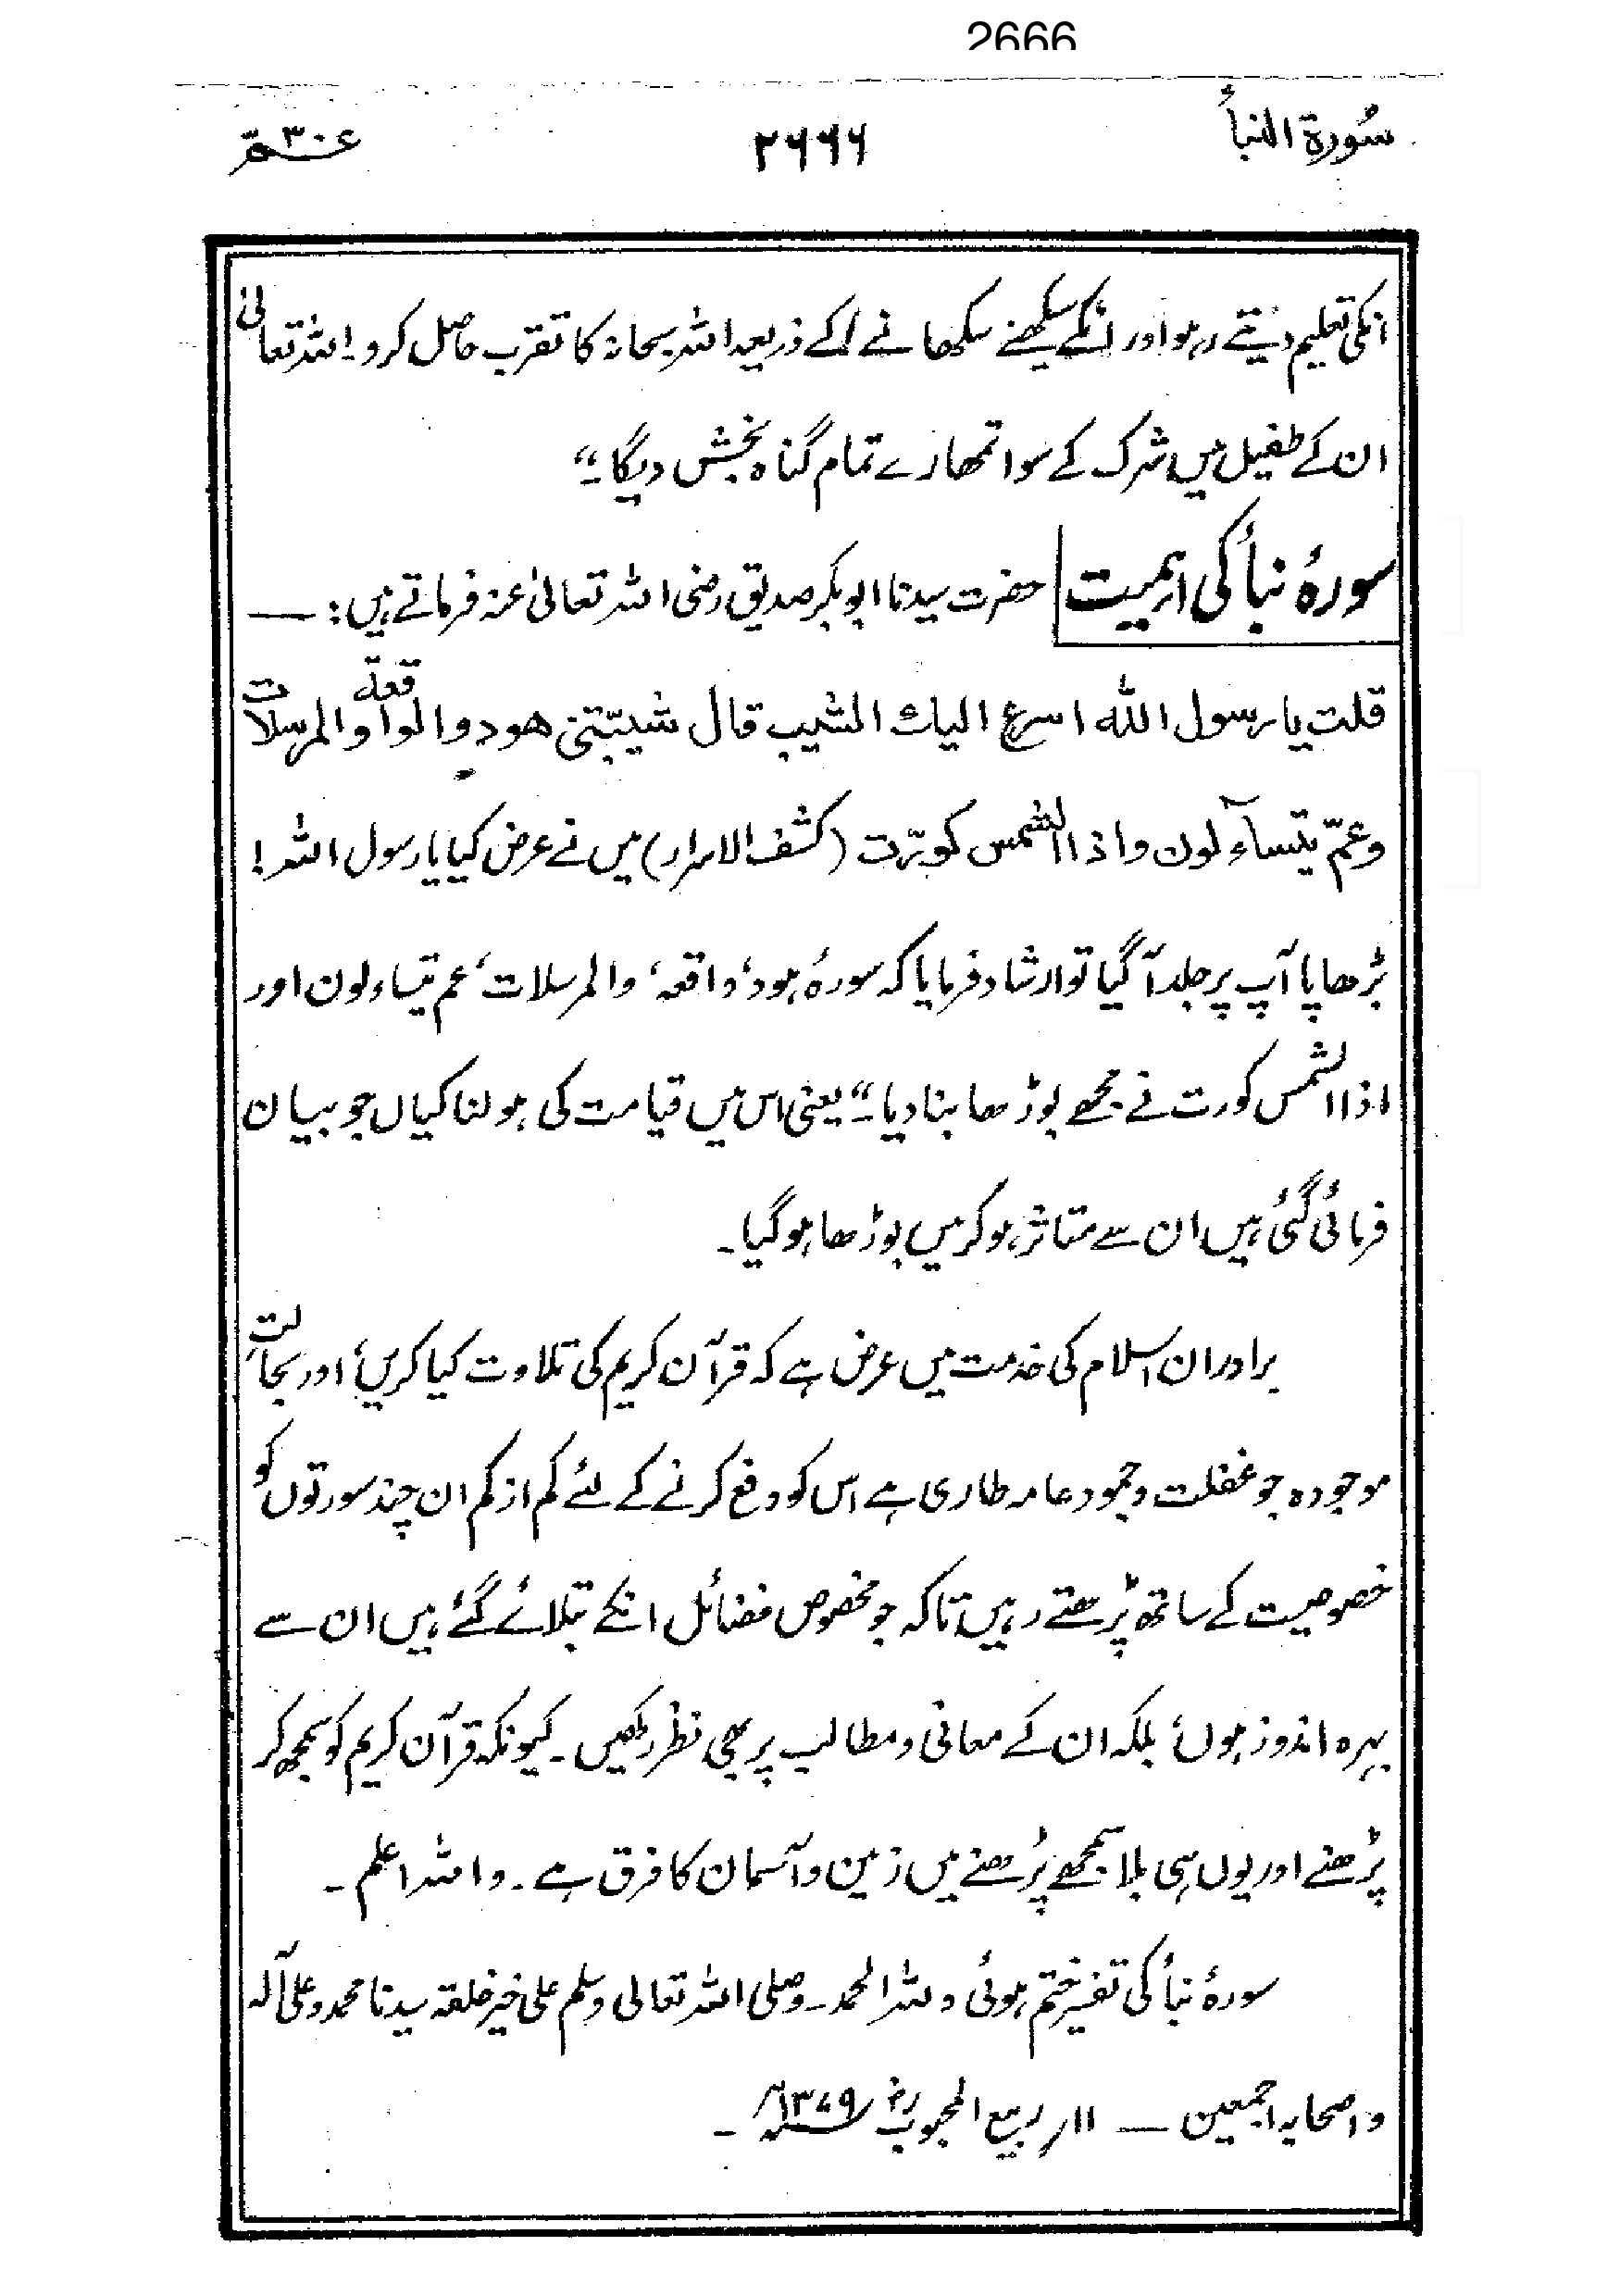 2666
سُورة النبأ ۲۶۶۶ عمّ ۳۰
انکی تعلیم دیتے رہو اور انکے سیکھنے سکھانے کے ذریعہ اللہ سبحانہ کا تقرب حاصل کرو۔ اللہ تعالیٰ
ان کے طفیل میں شرک کے سوا تمھارے تمام گناہ بخش دیگا۔“
سورۂ نبأ کی اہمیت حضرت سیدنا ابوبکر صدیق رضی اللہ تعالیٰ عنہ فرماتے ہیں: —
قلت یا رسول الله اسرع الیك الشیب قال شیّبتنی هود والواقعة والمرسلات
وعمّ یتسآءلون واذا الشمس کوّرت (کشف الاسرار) میں نے عرض کیا یا رسول اللہ!
بڑھاپا آپ پر جلد آگیا تو ارشاد فرمایا کہ سورۂ ہود، واقعہ، والمرسلات، عم یتساءلون اور
اذا الشمس کورت نے مجھے بوڑھا بنا دیا۔“ یعنی اس میں قیامت کی ہولناکیاں جو بیان
فرمائی گئی ہیں ان سے متاثر ہوکر میں بوڑھا ہوگیا۔
برادران اسلام کی خدمت میں عرض ہے کہ قرآن کریم کی تلاوت کیا کریں، اور بحالتِ
موجودہ جو غفلت و جمود عامہ طاری ہے اس کو دفع کرنے کے لئے کم از کم ان چند سورتوں کو
خصوصیت کے ساتھ پڑھتے رہیں تاکہ جو مخصوص فضائل انکے بتلائے گئے ہیں ان سے
بہرہ اندوز ہوں، بلکہ ان کے معانی و مطالب پر بھی نظر رکھیں۔ کیونکہ قرآن کریم کو سمجھ کر
پڑھنے اور یوں ہی بلا سمجھے پڑھنے میں زمین و آسمان کا فرق ہے۔ واللہ اعلم۔
سورۂ نبأ کی تفسیر ختم ہوئی وللہ الحمد۔ وصلی اللہ تعالی وسلم علی خیر خلقہ سیدنا محمد وعلی آلہ
واصحابہ اجمعین — ۱۱ر ربیع المحبوب ۱۳۷۹ھ۔